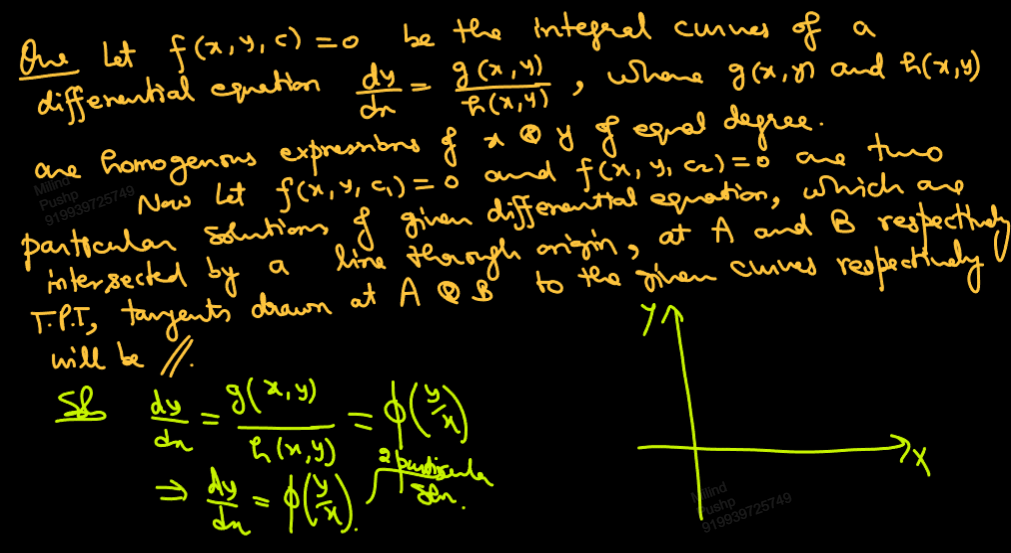 Que Let f(x,y,c) = 0 be the integral curves of a
differential equation dy/dx = g(x,y)/h(x,y) , where g(x,y) and h(x,y)
are homogenous expressions of x & y of equal degree.
Now Let f(x,y,c₁) = 0 and f(x,y,c₂) = 0 are two
particular solutions of given differential equation, which are
intersected by a line through origin, at A and B respectively
T.P.T, tangents drawn at A & B to the given curves respectively
will be //.
Sol dy/dx = g(x,y)/h(x,y) = ϕ(y/x)
⇒ dy/dx = ϕ(y/x). 2 particular
soln.
Y
X
Milind
Pushp
919939725749
Milind
Pushp
919939725749